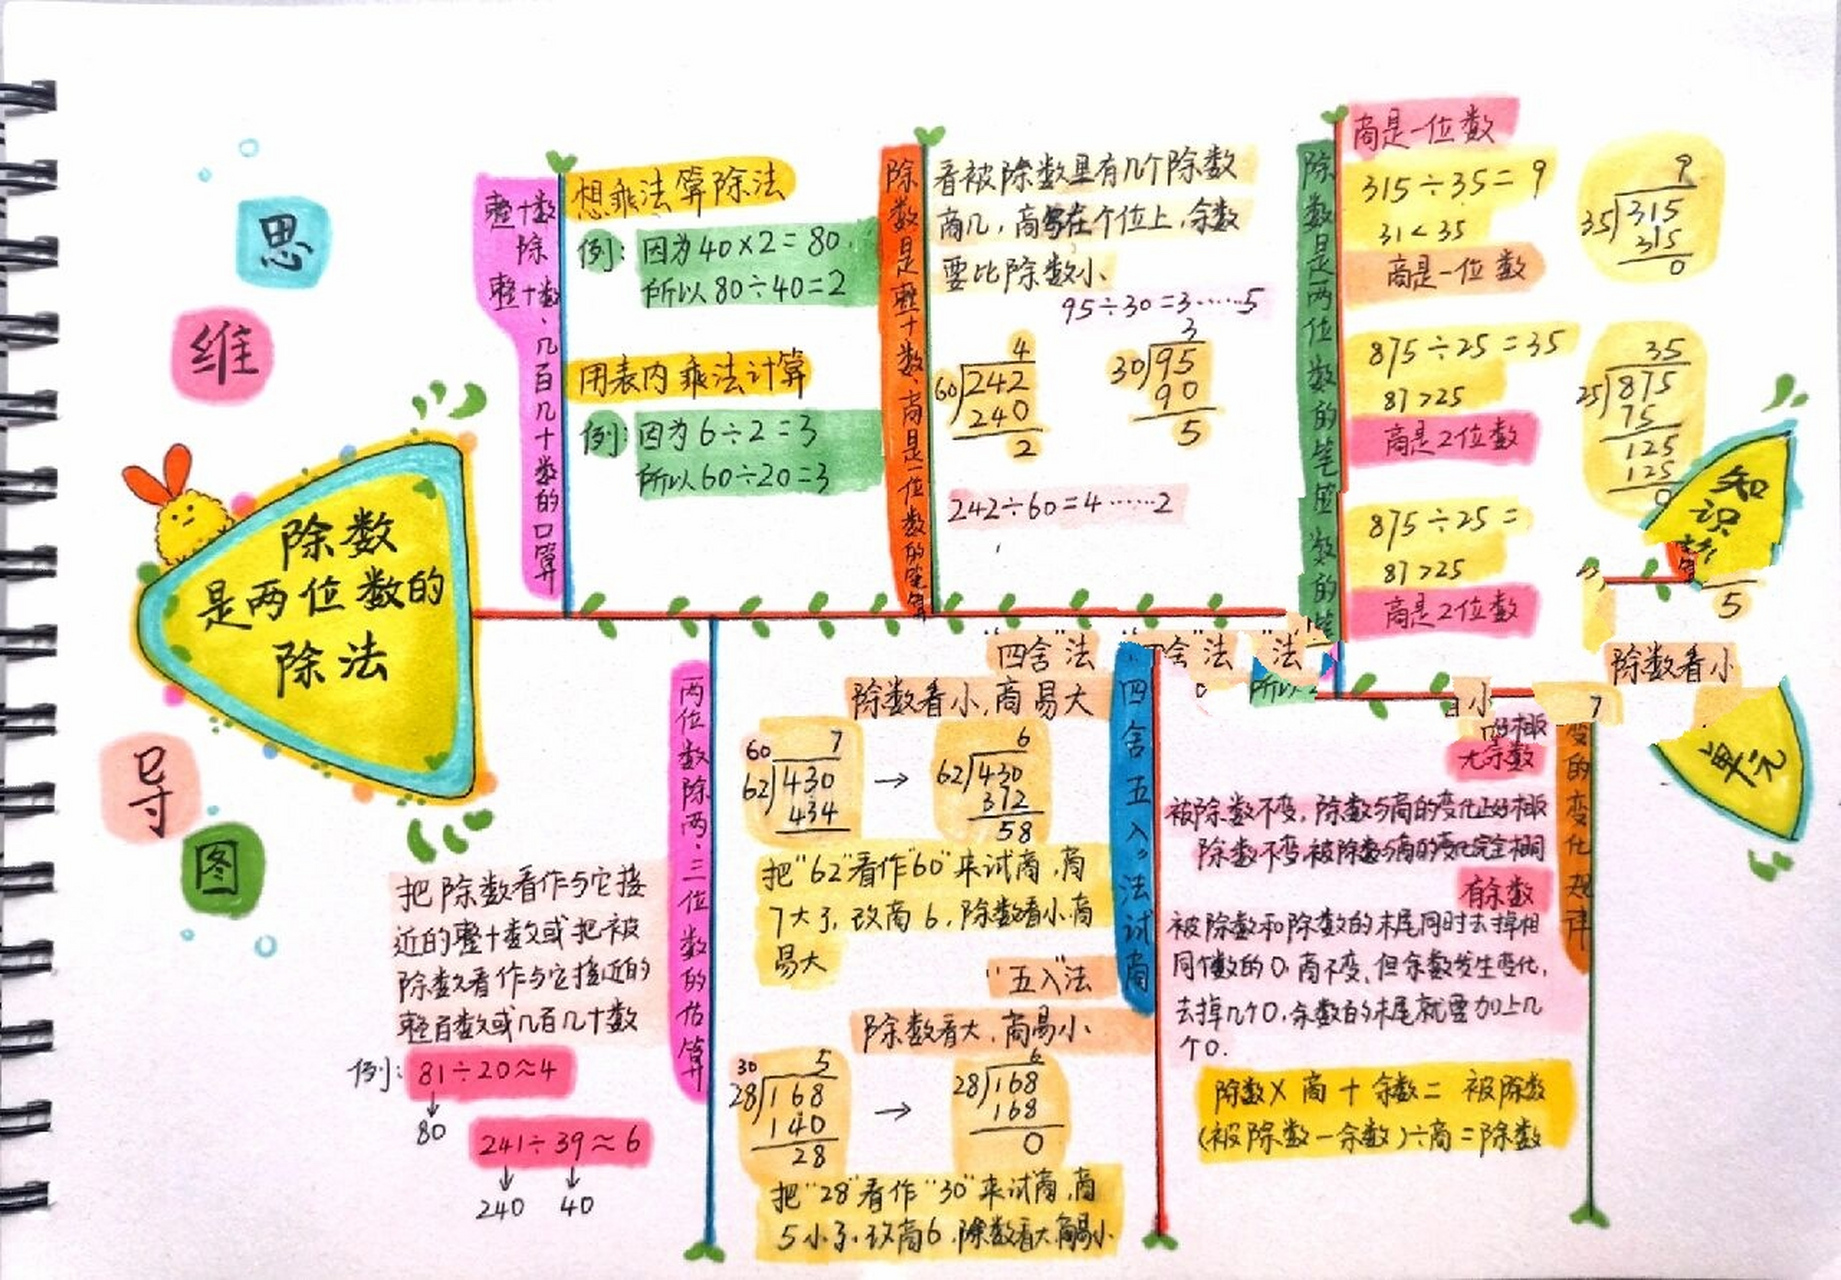 思
维
导
图
除数
是两位数的
除法
整十数
除
整十数、几百几十数的口算
想乘法算除法
例: 因为40×2=80.
所以80÷40=2
用表内乘法计算
例: 因为6÷2=3
所以60÷20=3
除数是整十数、商是一位数的笔算
看被除数里有几个除数
商几,商写在个位上,余数
要比除数小.
95÷30=3……5
4
60)242
240
2
3
30)95
90
5
242÷60=4……2
除数是两位数的笔
商是一位数
315÷35=9
31<35
商是一位数
9
35)315
315
0
875÷25=35
87>25
商是2位数
35
25)875
75
125
125
0
875÷25=
87>25
商是2位数
知识
单元
5
除数看小
两位数除两、三位数的估算
把除数看作与它接
近的整十数或把被
除数看作与它接近的
整百数或几百几十数
例: 81÷20≈4
80
241÷39≈6
240 40
"四舍"法
除数看小,商易大
60 7
62)430
434
→
6
62)430
372
58
把"62"看作"60"来试商,商
7大了,改商6,除数看小商
易大
"五入"法
除数看大,商易小
30 5
28)168
140
28
→
6
28)168
168
0
把"28"看作"30"来试商,商
5小了,改商6,除数看大商易小
"四舍五入"法试商
法
所以
小
7
变的变化规律
无余数
被除数不变,除数与商的变化正好相
除数不变,被除数与商的变化完全相同
有余数
被除数和除数的末尾同时去掉相
同个数的0,商不变,但余数发生变化,
去掉几个0,余数的末尾就要加上几
个0.
除数×商+余数=被除数
(被除数-余数)÷商=除数